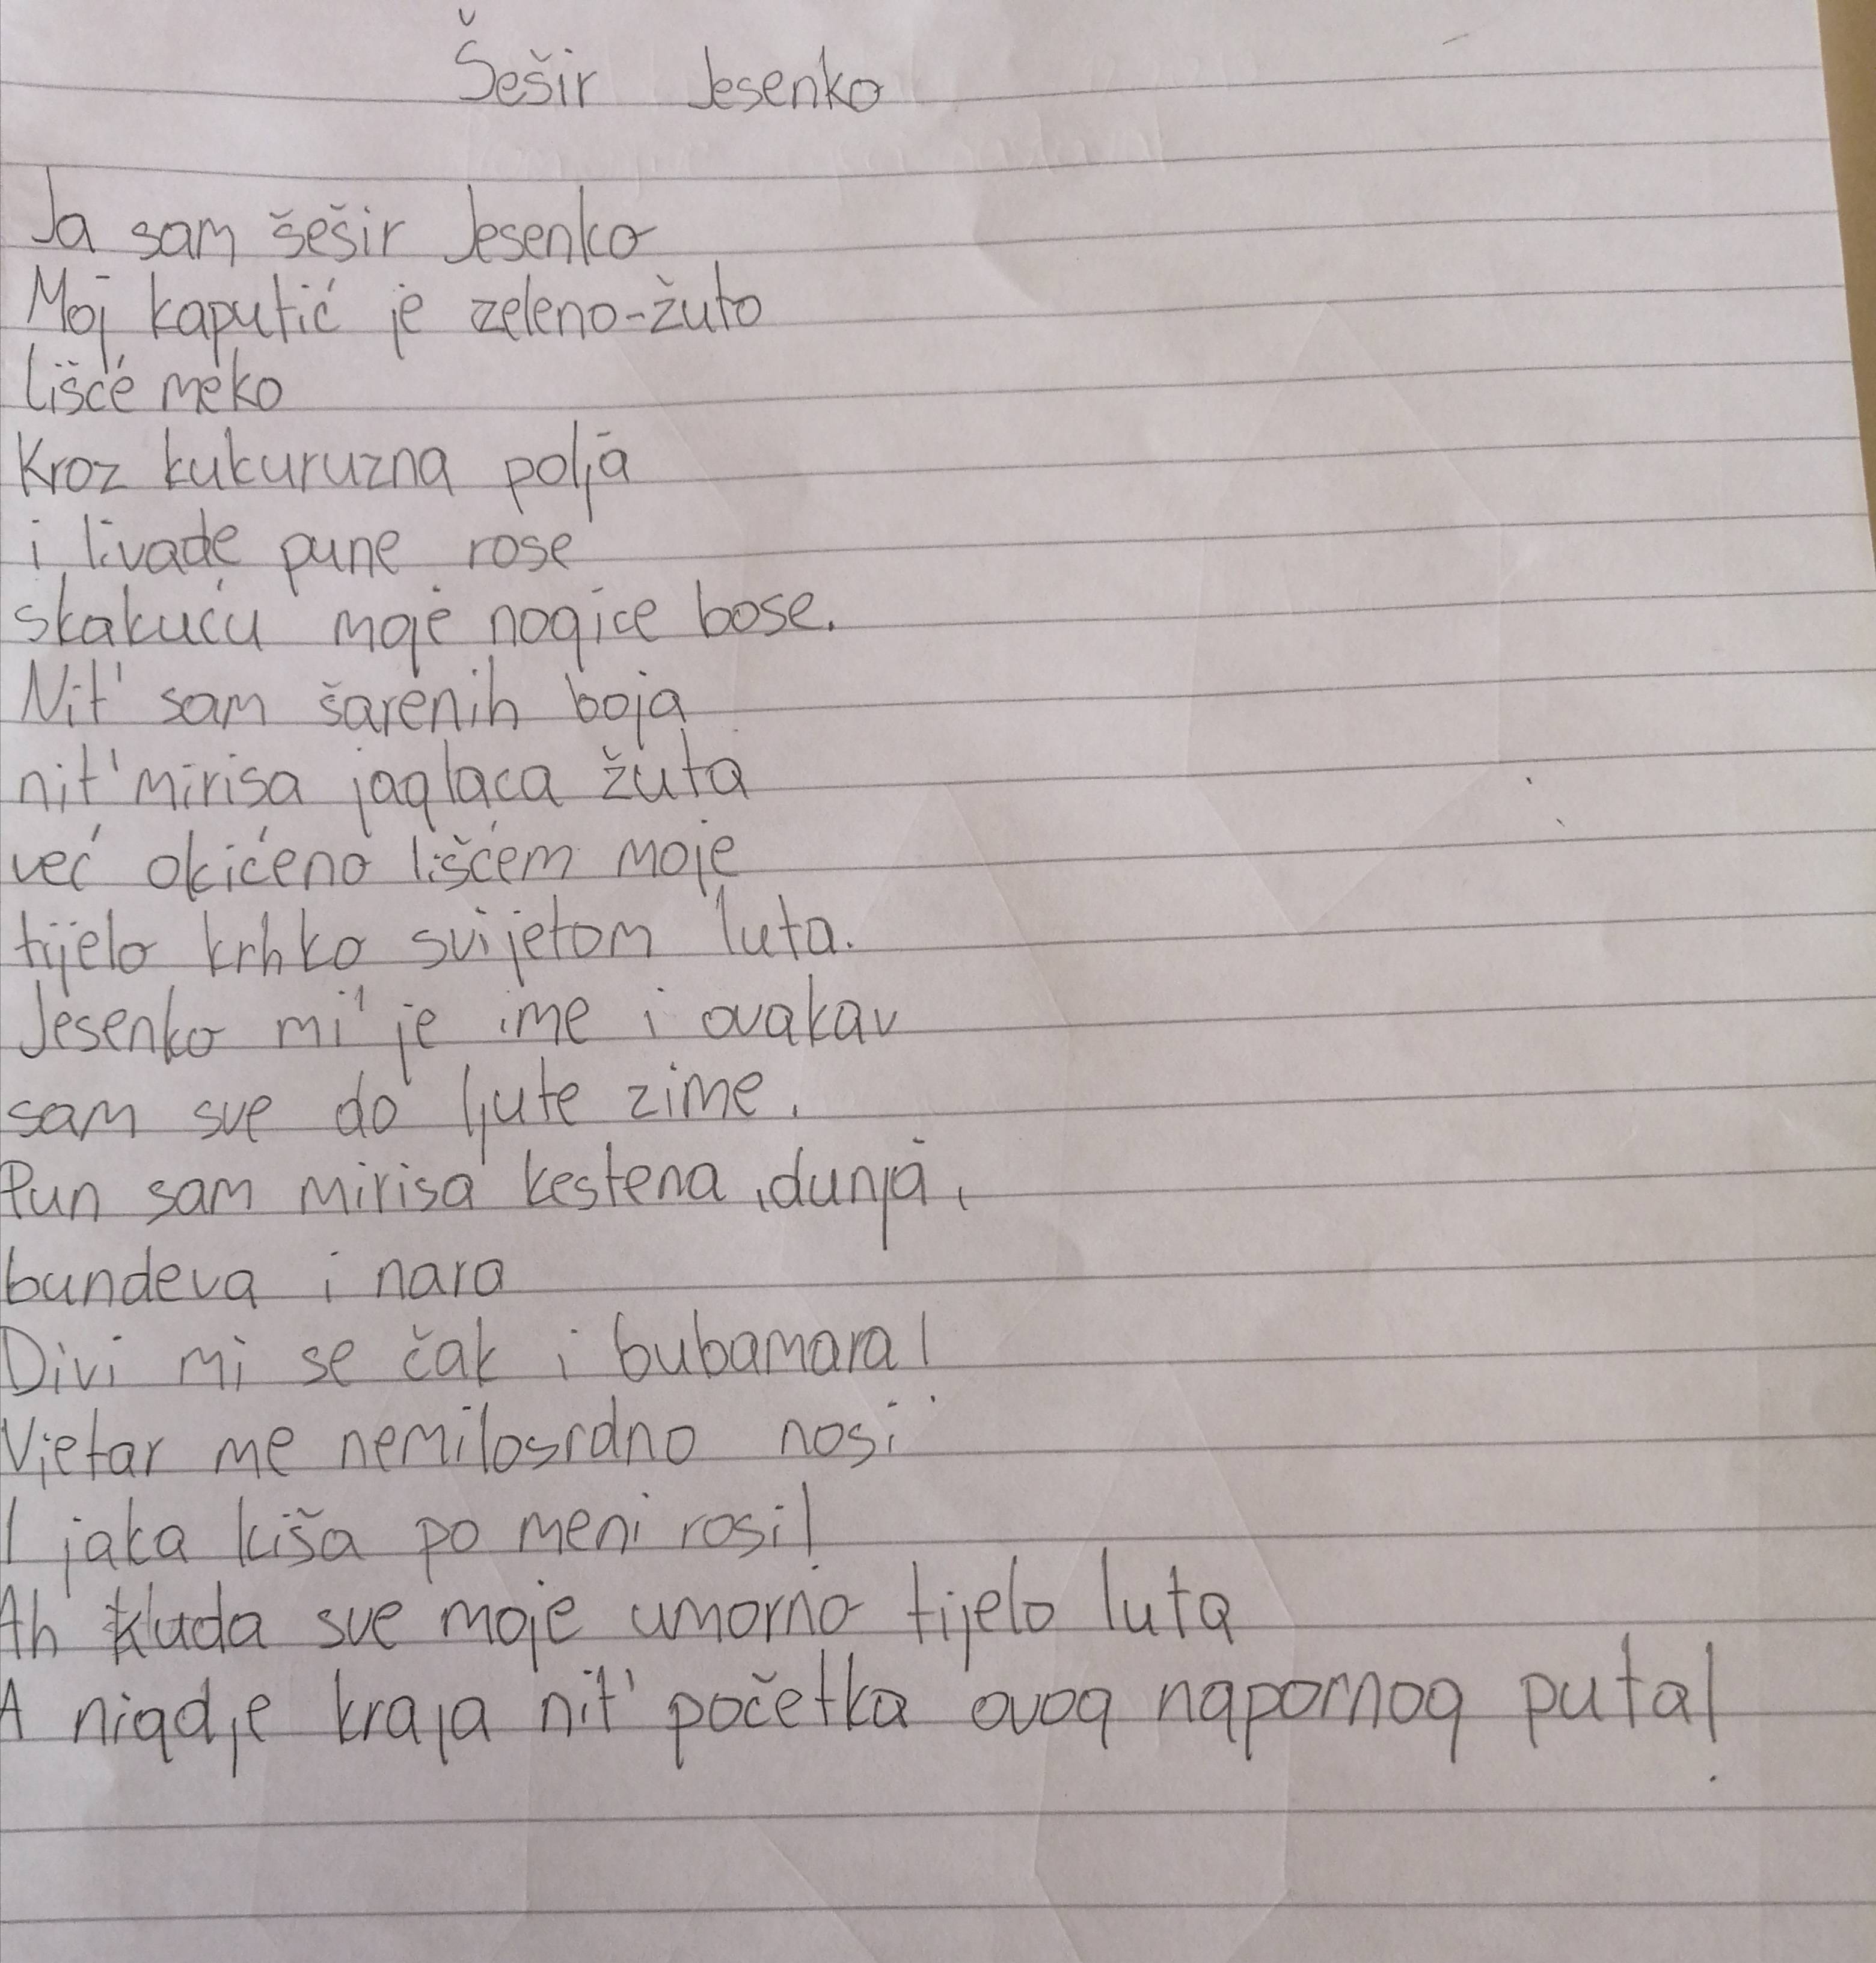 Šešir Jesenko
Ja sam šešir Jesenko
Moj kaputić je zeleno-žuto
lišće meko
Kroz kukuruzna polja
i livade pune rose
skakuću moje nogice bose.
Nit' sam šarenih boja
nit' mirisa jaglaca žuta
već okićeno lišćem moje
tijelo krhko svijetom luta.
Jesenko mi je ime i ovakav
sam sve do ljute zime.
Pun sam mirisa kestena, dunja,
bundeva i nara
Divi mi se čak i bubamara!
Vjetar me nemilosrdno nosi
I jaka kiša po meni rosi!
Ah kuda sve moje umorno tijelo luta
A nigdje kraja nit' početka ovog napornog puta!